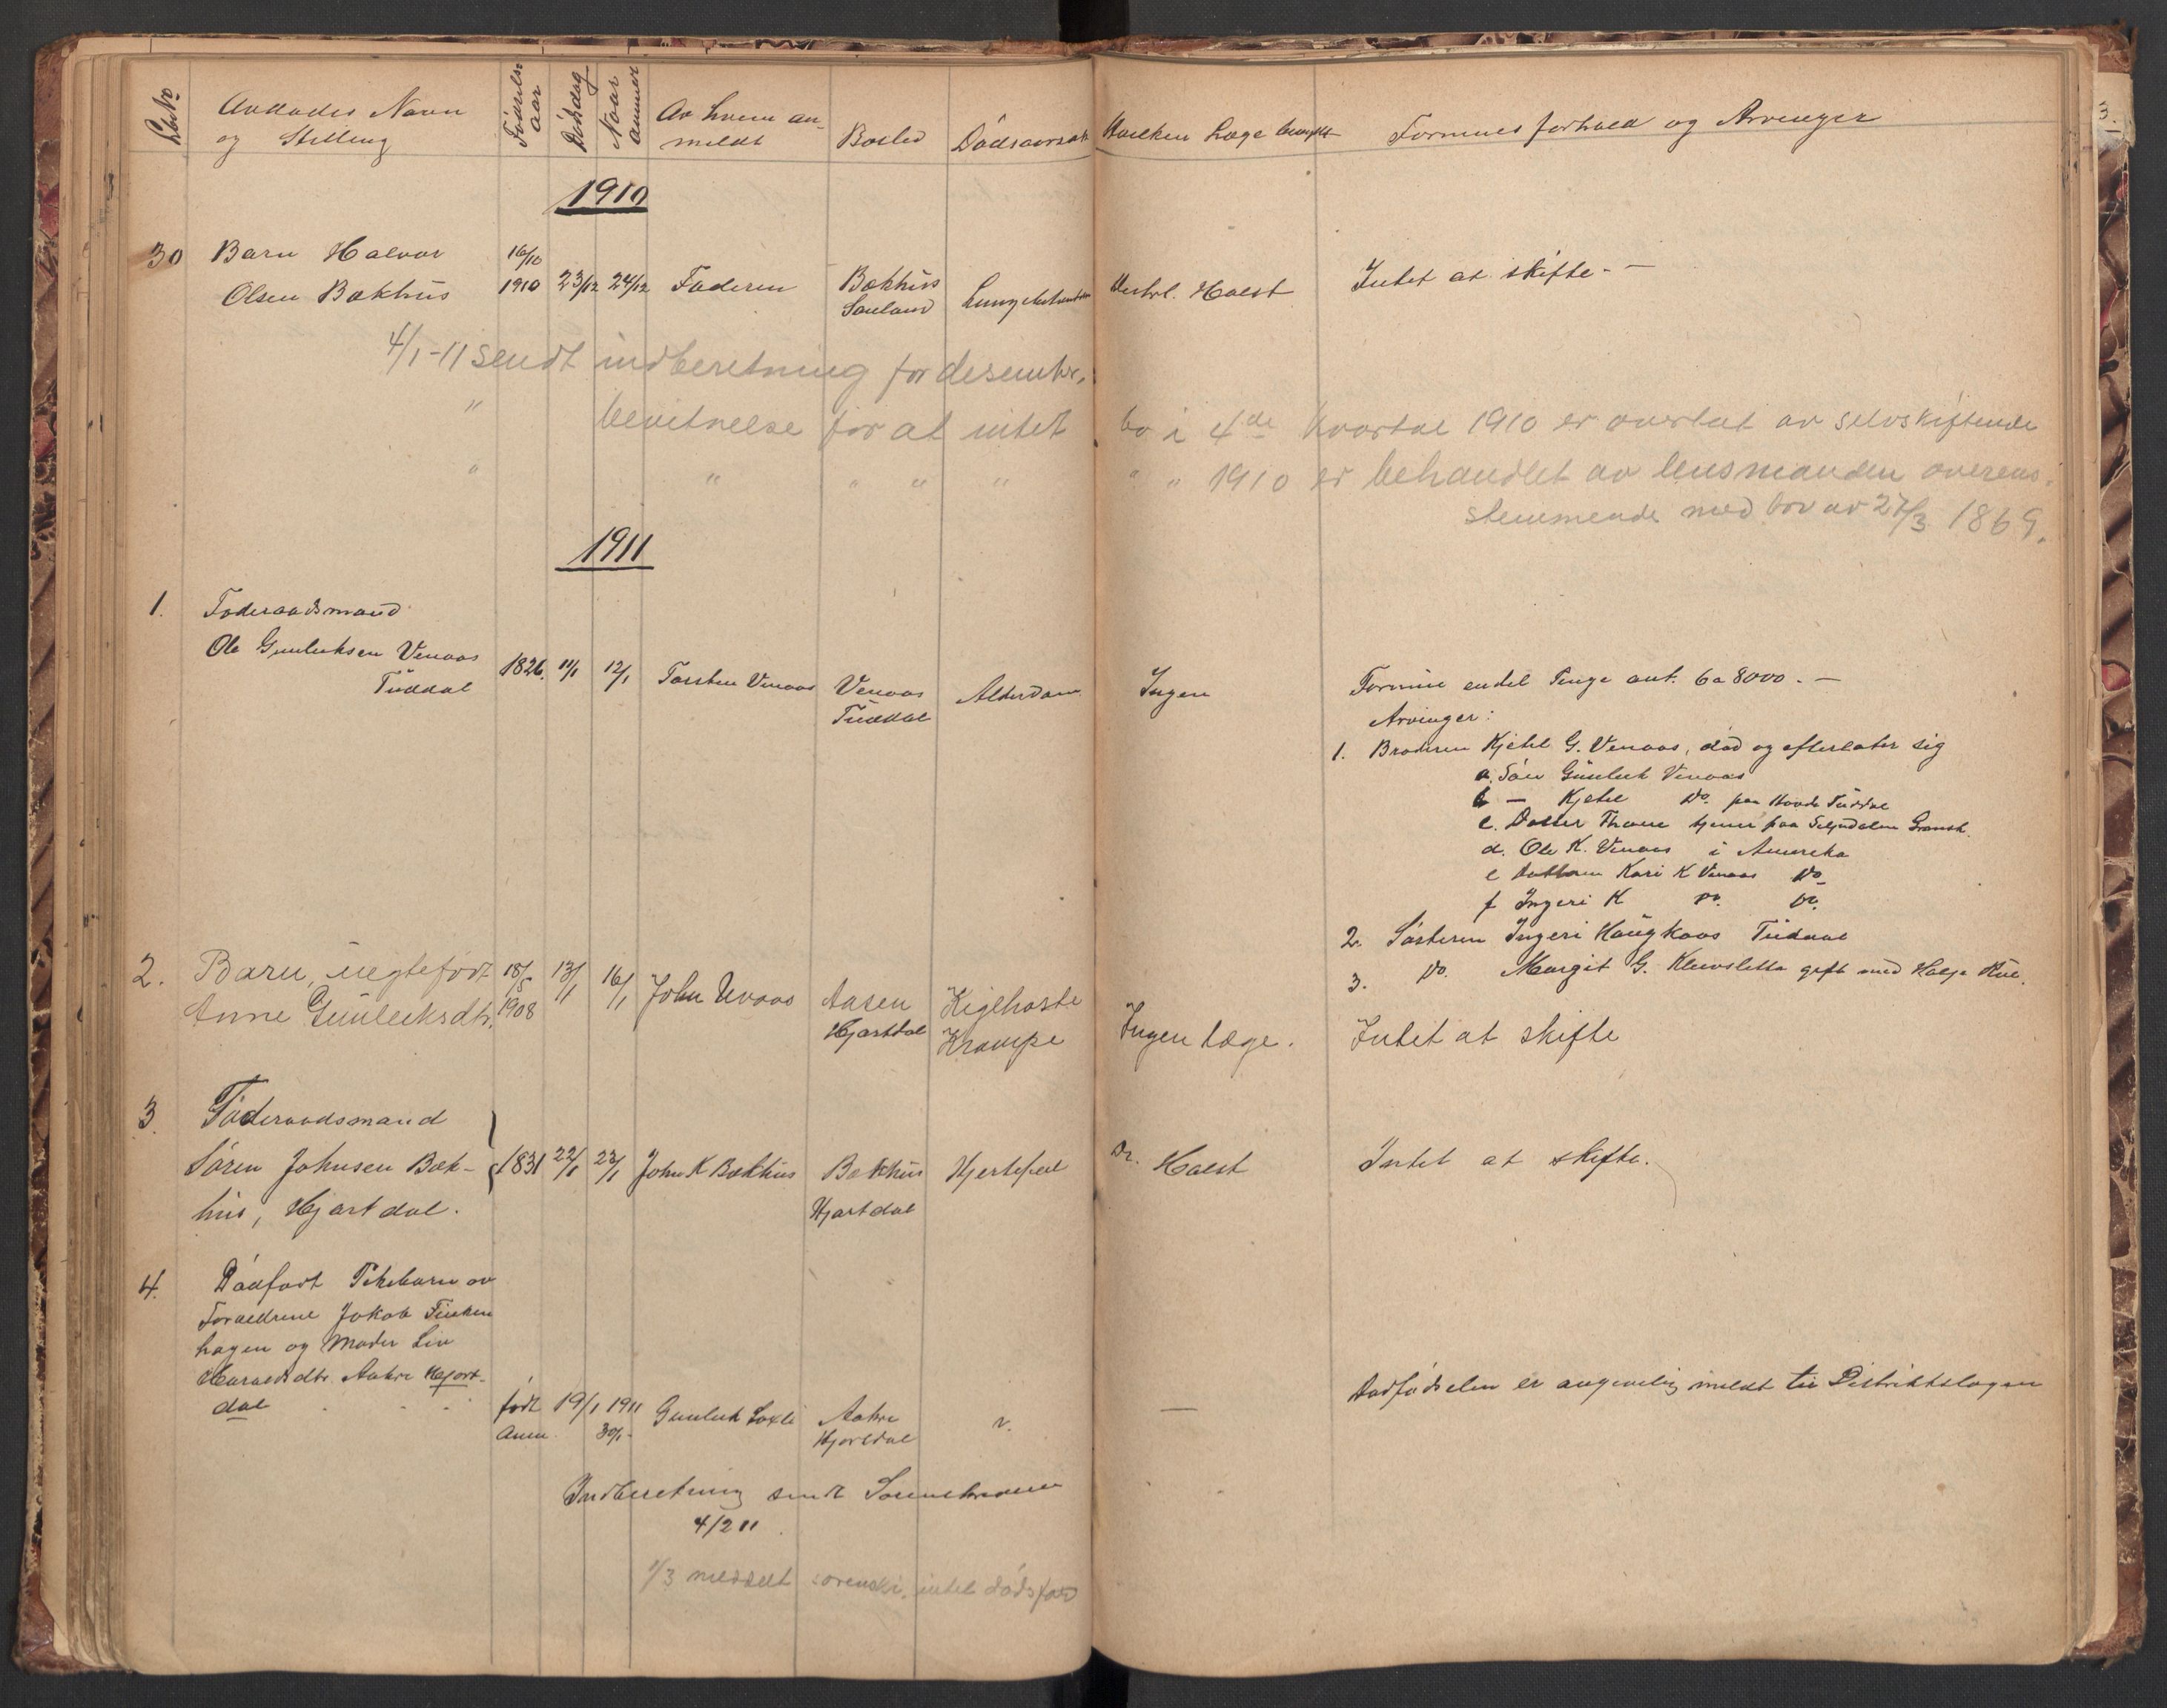 Lbe No
Avdødes Navn
og Stilling
Fødsels
aar
Dødsdag
Naar
anmeldt
Av hvem an-
meldt
Bosted
Dødsaarsak
Hvilken Læge benyttet
Formues forhold og Arvinger
1910
30 Barn Halvor 16/10
Olsen Bækhus 1910 23/12 24/12 Faderen Bækhus
Sauland Lungebetændelse Distrl. Holst Intet at skifte. -
4/1-11 sendt indberetning for desembr.
" bevitnelse for at intet bo i 4de kvartal 1910 er overtat av selvskiftende
" " " " " " " 1910 er behandlet av lensmanden overens-
stemmende med lov av 27/3 1869.
1911
1. Føderaadsmand
Ole Gunleksen Venaas
Tuddal 1826. 11/1 12/1 Torsten Venaas Venaas
Tuddal Alderdom Ingen Formue endel Penge ant. 6 a 8000. -
Arvinger:
1. Broderen Kjetil G. Venaas, død og efterlater sig
a. Søn Gunleik Venaas
b - Kjetil Do. paa Hovde Tuddal
c. Datter Thone tjener paa Seljudalen Gransh.
d. Ole K. Venaas i Amerika
e Datteren Kari K Venaas Do
f Ingeri K Do. Do.
2. Søsteren Ingeri Haugkaas Tuddal
3. Do. Margit G. Klevsletta gift med Halje Rue.
2. Barn, uegtefødt 18/5 13/1 16/1 John Uvaas Aasen Kighoste
Anne Gunleiksdtr. 1908 Hjartdal Krampe Ingen læge. Intet at skifte
3. Føderaadsmand
Søren Johnsen Bæk- 1831 22/1 23/1 John K Bækhus Bækhus Hjertefeil Dr. Holst Intet at skifte.
hus, Hjartdal. Hjartdal
4. Dødfødt Pikebarn av
Forældrene Jakob Finken
hagen og Moder Liv
Haraldsdtr. Aakre Hjart-
dal . . . født 19/1 1911 Gunleik Loxli Aakre v. - Dødfødselen er angivelig meldt til Distriktslægen
Anm. 30/1 - Hjartdal
Indberetning sendt Sorenskriveren
4/2 11.
1/3 meddelt sorenskr. intet dødsfald